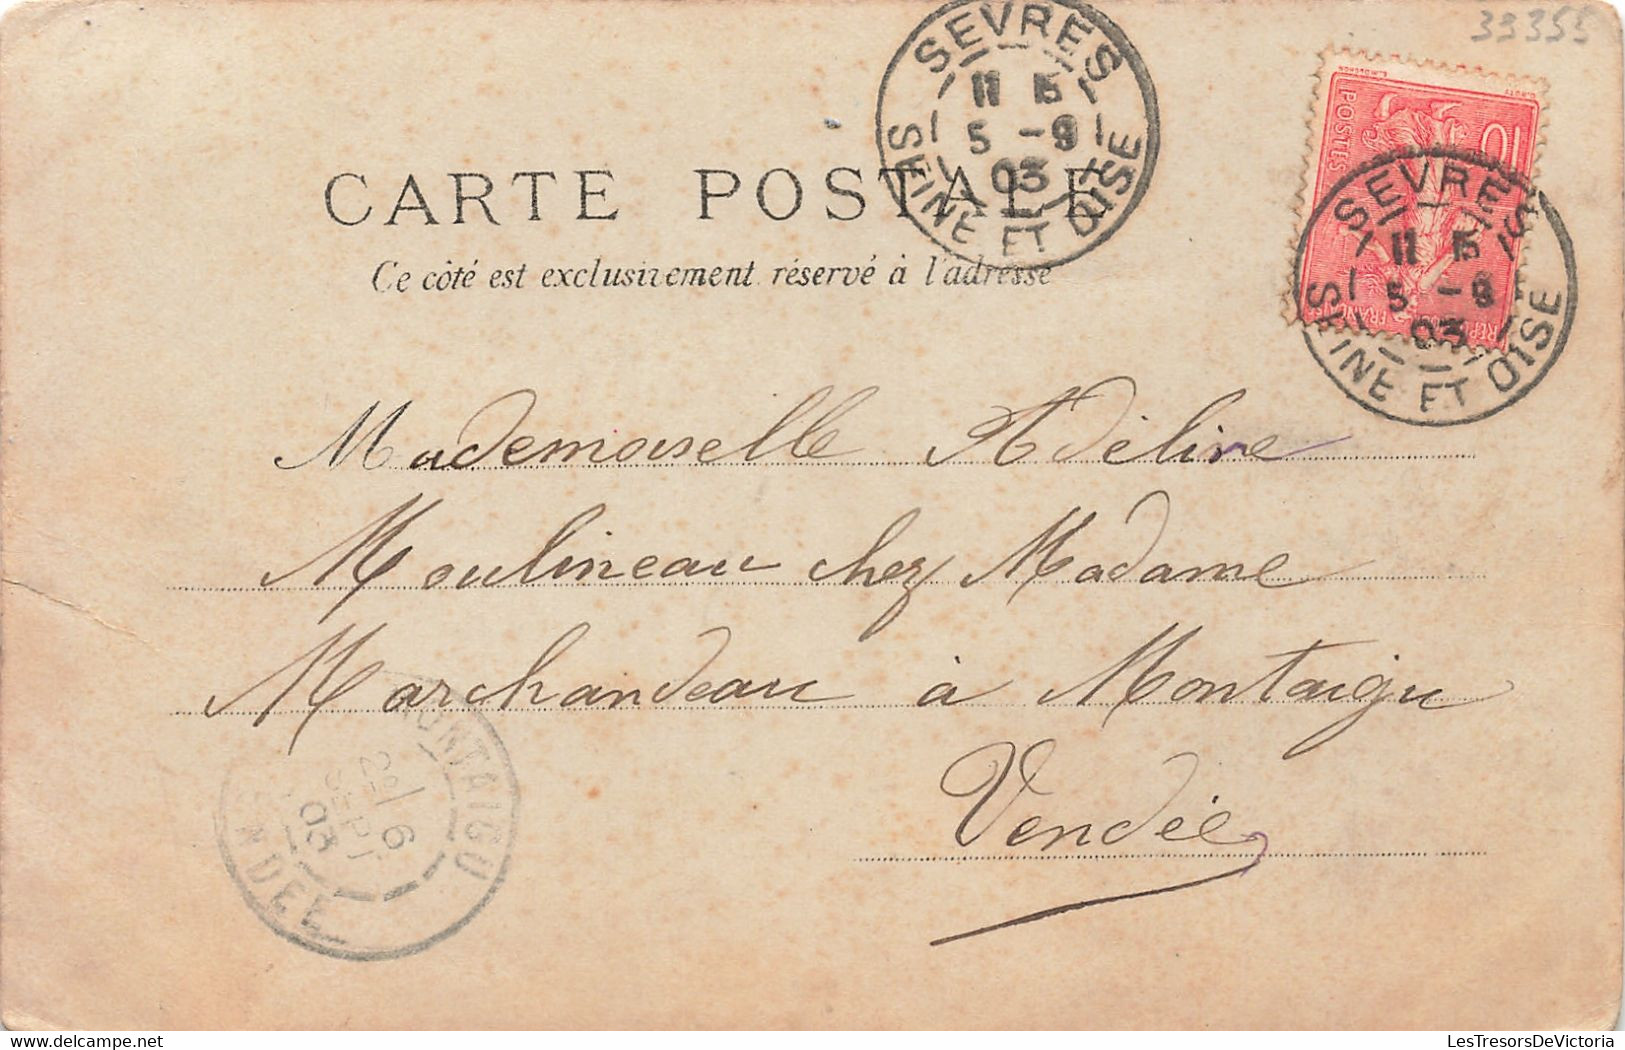 33355
SEVRES
11 15
5 -9
03
SEINE ET OISE
10
POSTES
SEVRES
11 15
5 -9
03
SEINE ET OISE
CARTE POSTALE
Ce côté est exclusivement réservé à l'adresse
Mademoiselle Adéline
Moulineau chez Madame
Marchandeau à Montaigu
Vendée
MONTAIGU
6
SEPT
03
LesTresorsDeVictoria